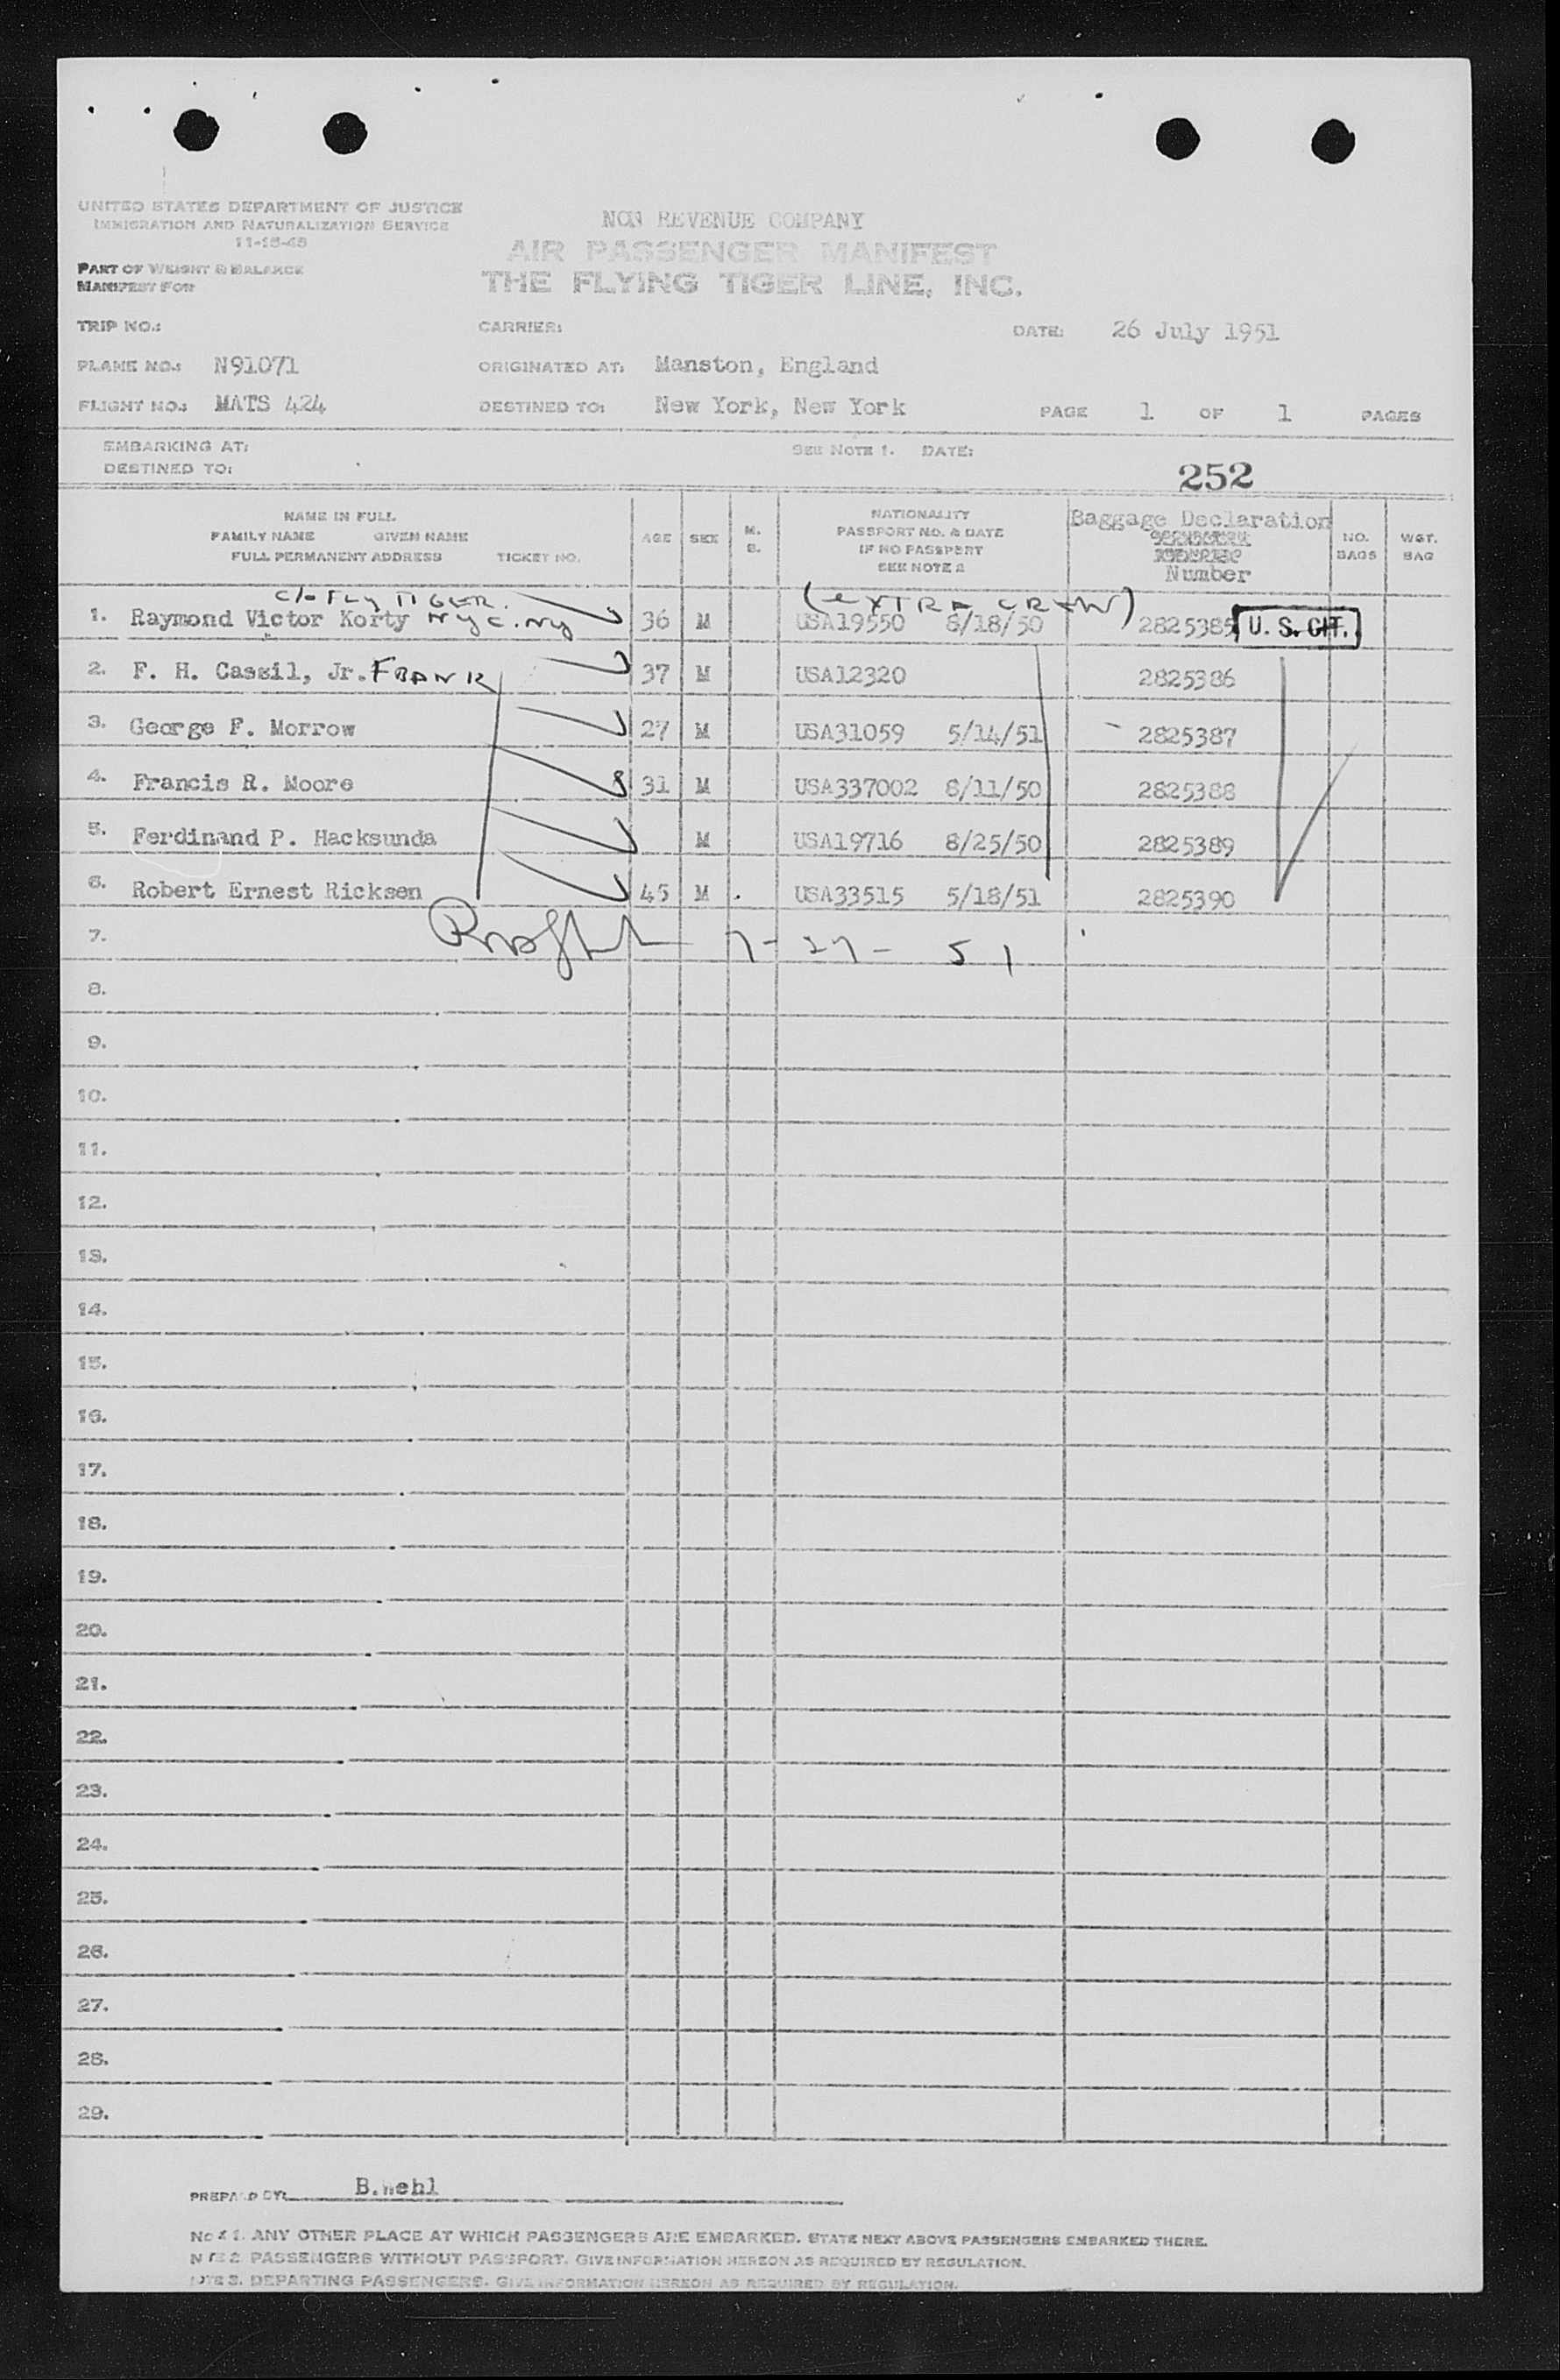 UNITED STATES DEPARTMENT OF JUSTICE
IMMIGRATION AND NATURALIZATION SERVICE
11-15-45
PART OF WEIGHT & BALANCE
MANIFEST FOR
NON REVENUE COMPANY
AIR PASSENGER MANIFEST
THE FLYING TIGER LINE, INC.
TRIP NO.: CARRIER: DATE: 26 July 1951
PLANE NO.: N91071 ORIGINATED AT: Manston, England
FLIGHT NO.: MATS 424 DESTINED TO: New York, New York PAGE 1 OF 1 PAGES
EMBARKING AT: SEE NOTE 1. DATE:
DESTINED TO:
252
NAME IN FULL
FAMILY NAME GIVEN NAME
FULL PERMANENT ADDRESS TICKET NO.
AGE SEX M. S.
NATIONALITY
PASSPORT NO. & DATE
IF NO PASSPORT
SEE NOTE 2
Baggage Declaration
Number
NO. BAGS
WGT. BAG
c/o FLY TIGER. (EXTRA CREW)
1. Raymond Victor Korty NYC. NY 36 M USA19550 8/18/50 2825385 U. S. CIT.
2. F. H. Cassil, Jr. FRANK 37 M USA12320 2825386
3. George F. Morrow 27 M USA31059 5/14/51 2825387
4. Francis R. Moore 31 M USA337002 8/11/50 2825388
5. Ferdinand P. Hacksunda M USA19716 8/25/50 2825389
6. Robert Ernest Ricksen 45 M USA33515 5/18/51 2825390
7. 7-27-51
8.
9.
10.
11.
12.
13.
14.
15.
16.
17.
18.
19.
20.
21.
22.
23.
24.
25.
26.
27.
28.
29.
PREPARED BY: B.Wehl
NOTE 1. ANY OTHER PLACE AT WHICH PASSENGERS ARE EMBARKED. STATE NEXT ABOVE PASSENGERS EMBARKED THERE.
NOTE 2. PASSENGERS WITHOUT PASSPORT. GIVE INFORMATION HEREON AS REQUIRED BY REGULATION.
NOTE 3. DEPARTING PASSENGERS. GIVE INFORMATION HEREON AS REQUIRED BY REGULATION.